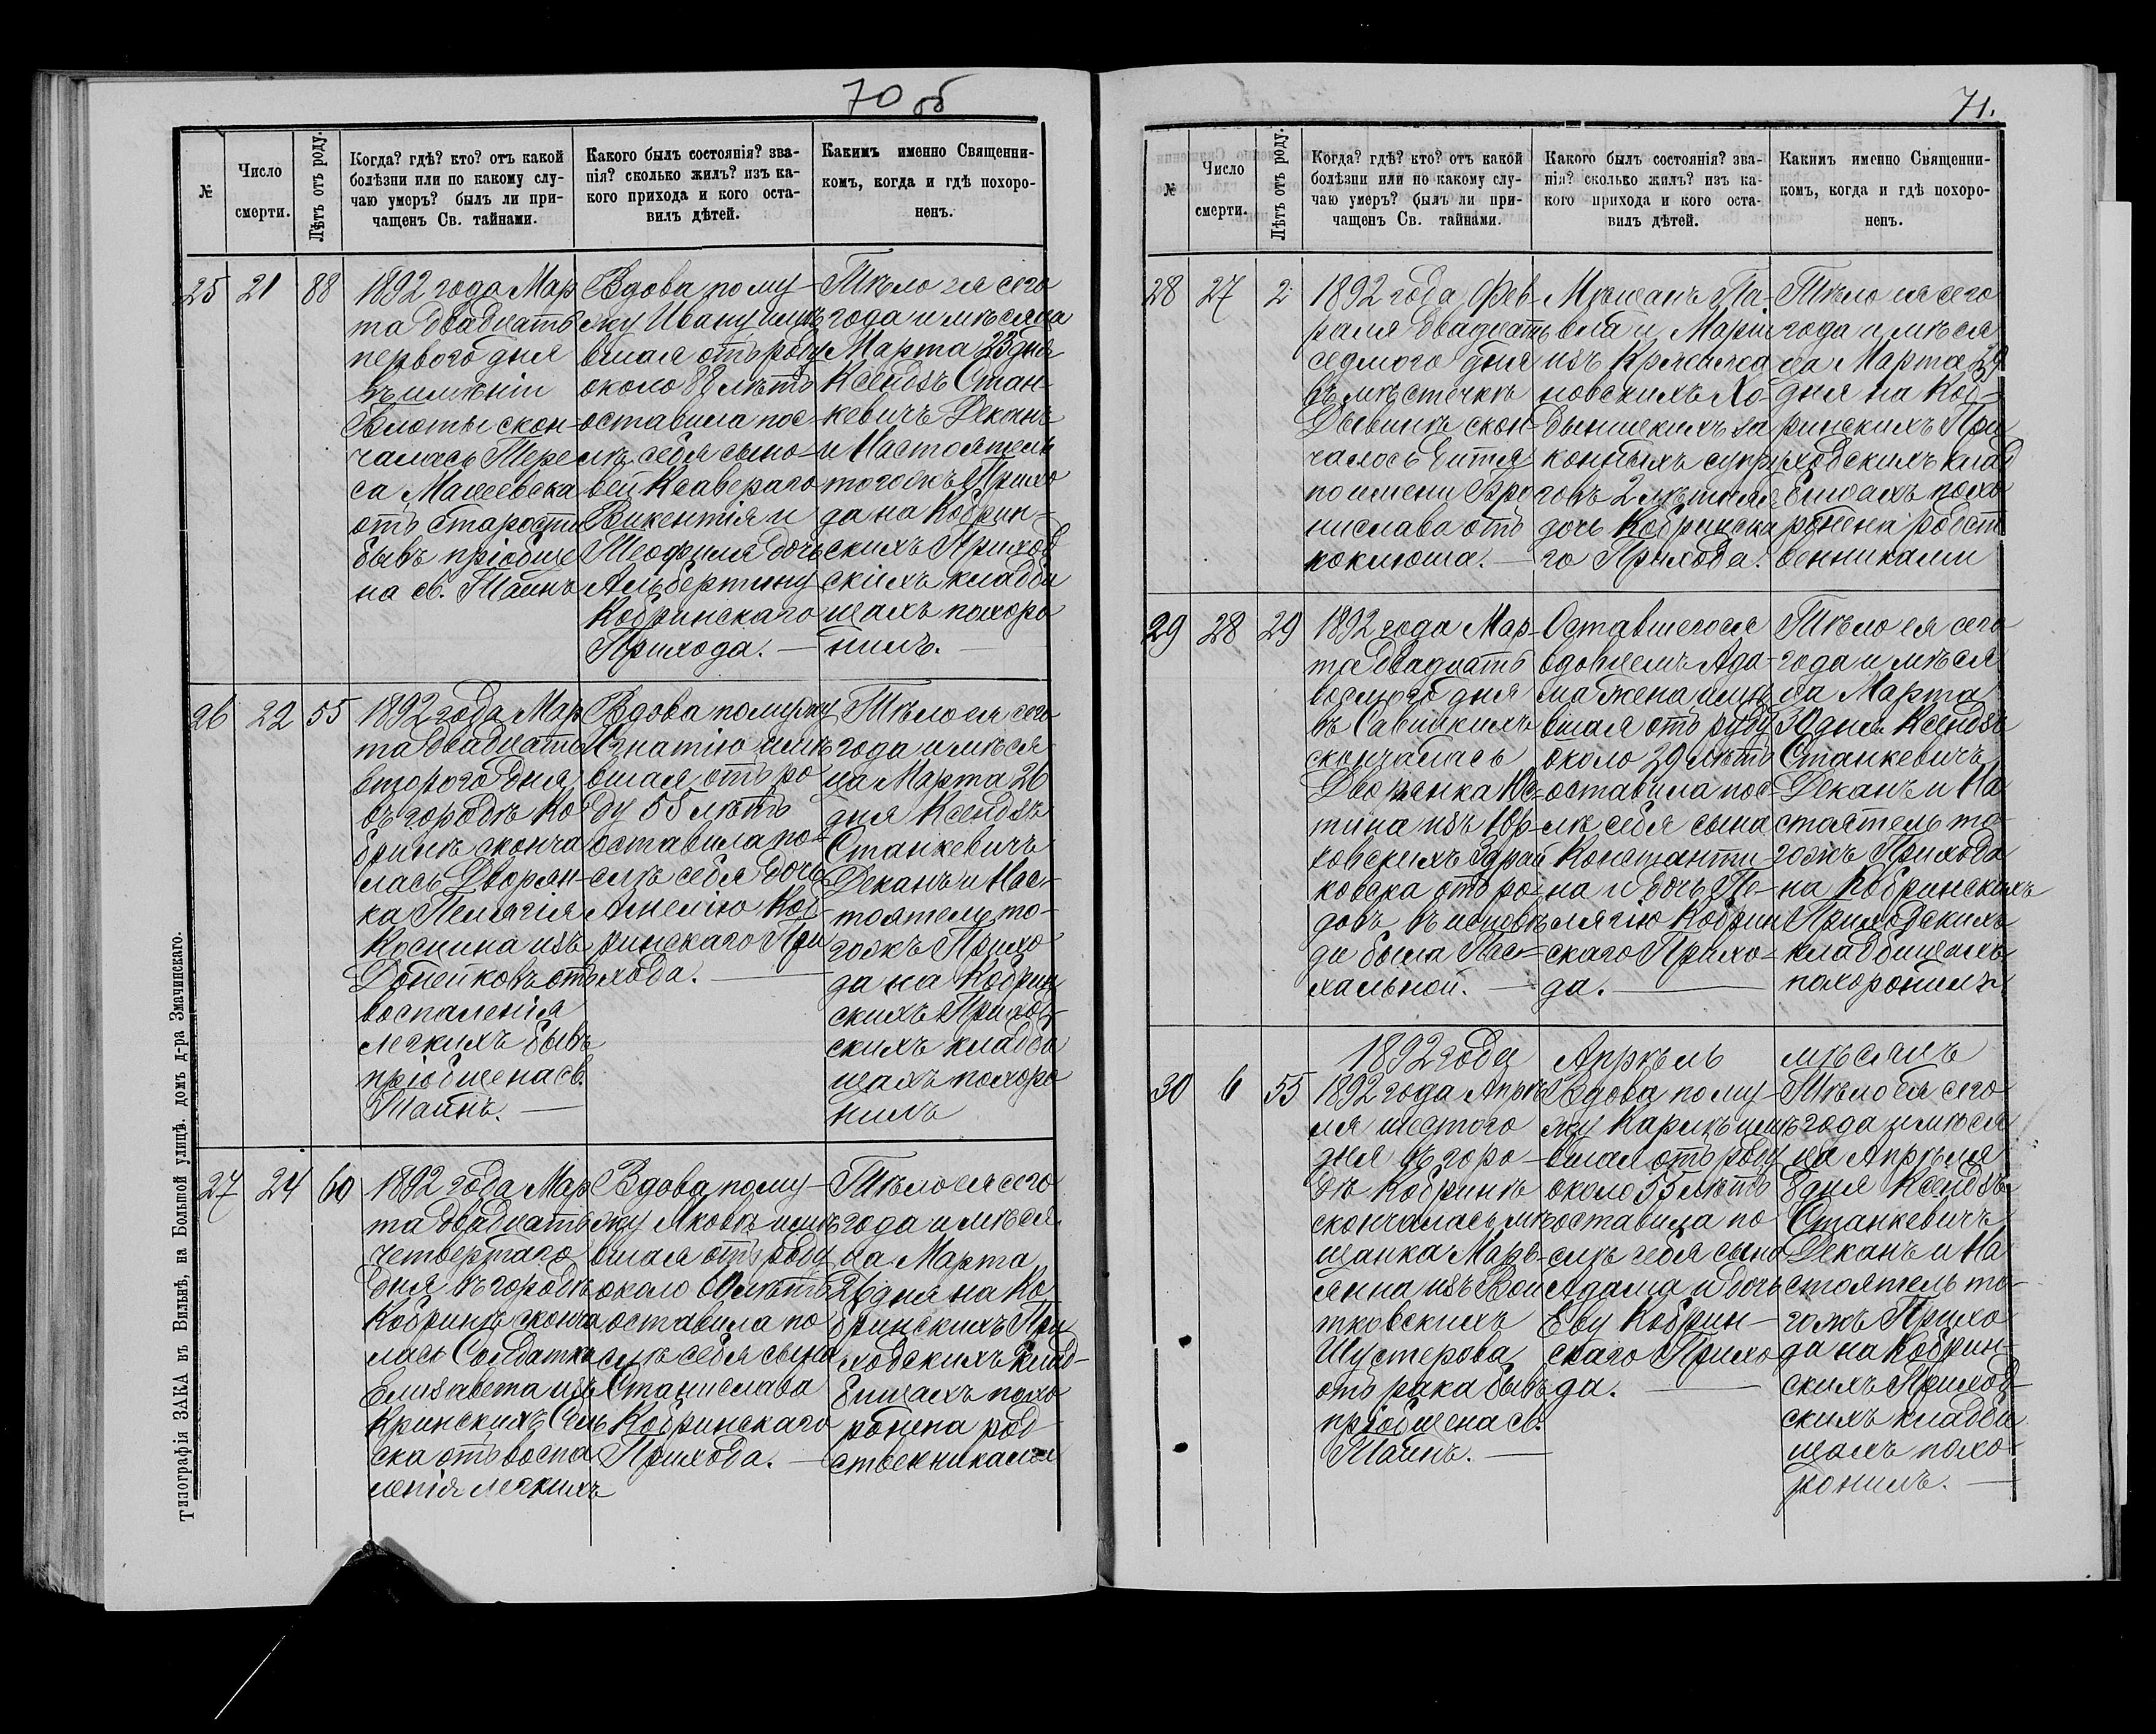 70 об
№
Число
смерти.
Лѣтъ отъ роду.
Когда? гдѣ? кто? отъ какой
болѣзни или по какому слу-
чаю умеръ? былъ ли при-
чащенъ Св. тайнами.
Какого былъ состоянія? зва-
нія? сколько жилъ? изъ ка-
кого прихода и кого оста-
вилъ дѣтей.
Какимъ именно Священни-
комъ, когда и гдѣ похоро-
ненъ.
25
21
88
1892 года Мар
та двадцать
перваго дня
въ имѣніи
скон-
чалась Тере
са
отъ старости
бывъ пріобще
на св. Таинъ
Вдова по му-
жу Ивану имѣ
вшая отъ роду
около 88 лѣтъ
оставила пос-
лѣ себя сыно-
вей Ксавераго
Викентія и
Теофиля дочь
Альбертину
Кобринскаго
Прихода. —
Тѣло ея сего
года и мѣсяца
Марта 23 дня
Ксендзъ Стан-
кевичъ Деканъ
и Настоятель
тогожъ Прихо
да на Кобрин-
скихъ Приход
скихъ кладби
щахъ похоро
нилъ. —
26
22
55
1892 года Мар
та двадцать
втораго дня
въ городѣ Ко
бринѣ сконча
лась Дворян-
ка Пелягія
изъ
отъ
воспаленія
легкихъ бывъ
пріобщена св.
Таинъ. —
Вдова по мужу
Игнатію имѣ
вшая отъ ро
ду 55 лѣтъ
оставила по-
слѣ себя дочь
Амелію Коб-
ринскаго При
хода. —
Тѣло ея сего
года и мѣся-
ца Марта 26
дня Ксендзъ
Станкевичъ
Деканъ и Нас-
тоятель то-
гожъ Прихо
да на Кобрин
скихъ Приход-
скихъ кладби
щахъ похоро
нилъ
27
24
60
1892 года Мар
та двадцать
четвертаго
дня въ городѣ
Кобринѣ сконча
лась Солдатка
Елизавета изъ
Кринскихъ
ска отъ воспа
ленія легкихъ
Вдова по му-
жу Яковѣ имѣ
вшая отъ роду
около 60 лѣтъ
оставила по-
слѣ себя сына
Станислава
Кобринскаго
Прихода. —
Тѣло ея сего
года и мѣся-
ца Марта
26 дня на Ко
бринскихъ При
ходскихъ клад-
бищахъ похо
ронена род
ственниками
Типографія ЗАКА въ Вильнѣ, на Большой улицѣ. домъ д-ра Змачинскаго.
71.
№
Число
смерти.
Лѣтъ отъ роду.
Когда? гдѣ? кто? отъ какой
болѣзни или по какому слу-
чаю умеръ? былъ ли при-
чащенъ Св. тайнами.
Какого былъ состоянія? зва-
нія? сколько жилъ? изъ ка-
кого прихода и кого оста-
вилъ дѣтей.
Какимъ именно Священни-
комъ, когда и гдѣ похоро-
ненъ.
28
27
2
1892 года Фев-
раля двадцать
седмого дня
въ мѣстечкѣ
Дывинѣ скон-
чалось дитя
по имени Бро
нислава отъ
коклюша. —
Мѣщанъ Па-
вла и Маріи
изъ
новскихъ
за
конныхъ супру
говъ 2 лѣтняя
дочь Кобринска
го Прихода.
Тѣло ея сего
года и мѣся
ца Марта 29
дня на Коб-
ринскихъ При
ходскихъ клад
бищахъ похо
ронена родст
венниками
29
28
29
1892 года Мар-
та двадцать
восьмого дня
въ Савицкихъ
скончалась
Дворянка
изъ
отъ ро-
довъ въ исповѣ
ди была Пас-
хальной. —
Оставшегося
вдовцемъ Ада-
ма жена имѣ
вшая отъ роду
около 29 лѣтъ
оставила пос-
лѣ себя сына
Константи-
на и дочь Пе-
лягію Кобрин
скаго Прихо-
да. —
Тѣло ея сего
года и мѣся
ца Марта
30 дня Ксендзъ
Станкевичъ
Деканъ и На
стоятель то-
гожъ Прихода
на Кобринскихъ
Приходскихъ
кладбищахъ
похоронилъ.
1892 года Апрѣль мѣсяцъ
30
6
55
1892 года Апрѣ
ля шестого
дня въ горо-
дѣ Кобринѣ
скончалась мѣ
щанка Марь-
янна изъ Вой
тковскихъ
Шустерова
отъ рака бывъ
пріобщена св.
Таинъ. —
Вдова по му-
жу Карлѣ имѣ
вшая отъ роду
около 55 лѣтъ
оставила по
слѣ себя сына
Адама и дочь
Еву Кобрин-
скаго Прихо
да. —
Тѣло ея сего
года и мѣся
ца Апрѣля
8 дня Ксендзъ
Станкевичъ
Деканъ и На
стоятель то-
гожъ Прихо
да на Кобрин-
скихъ Приход-
скихъ кладби
щахъ похо-
ронилъ. —